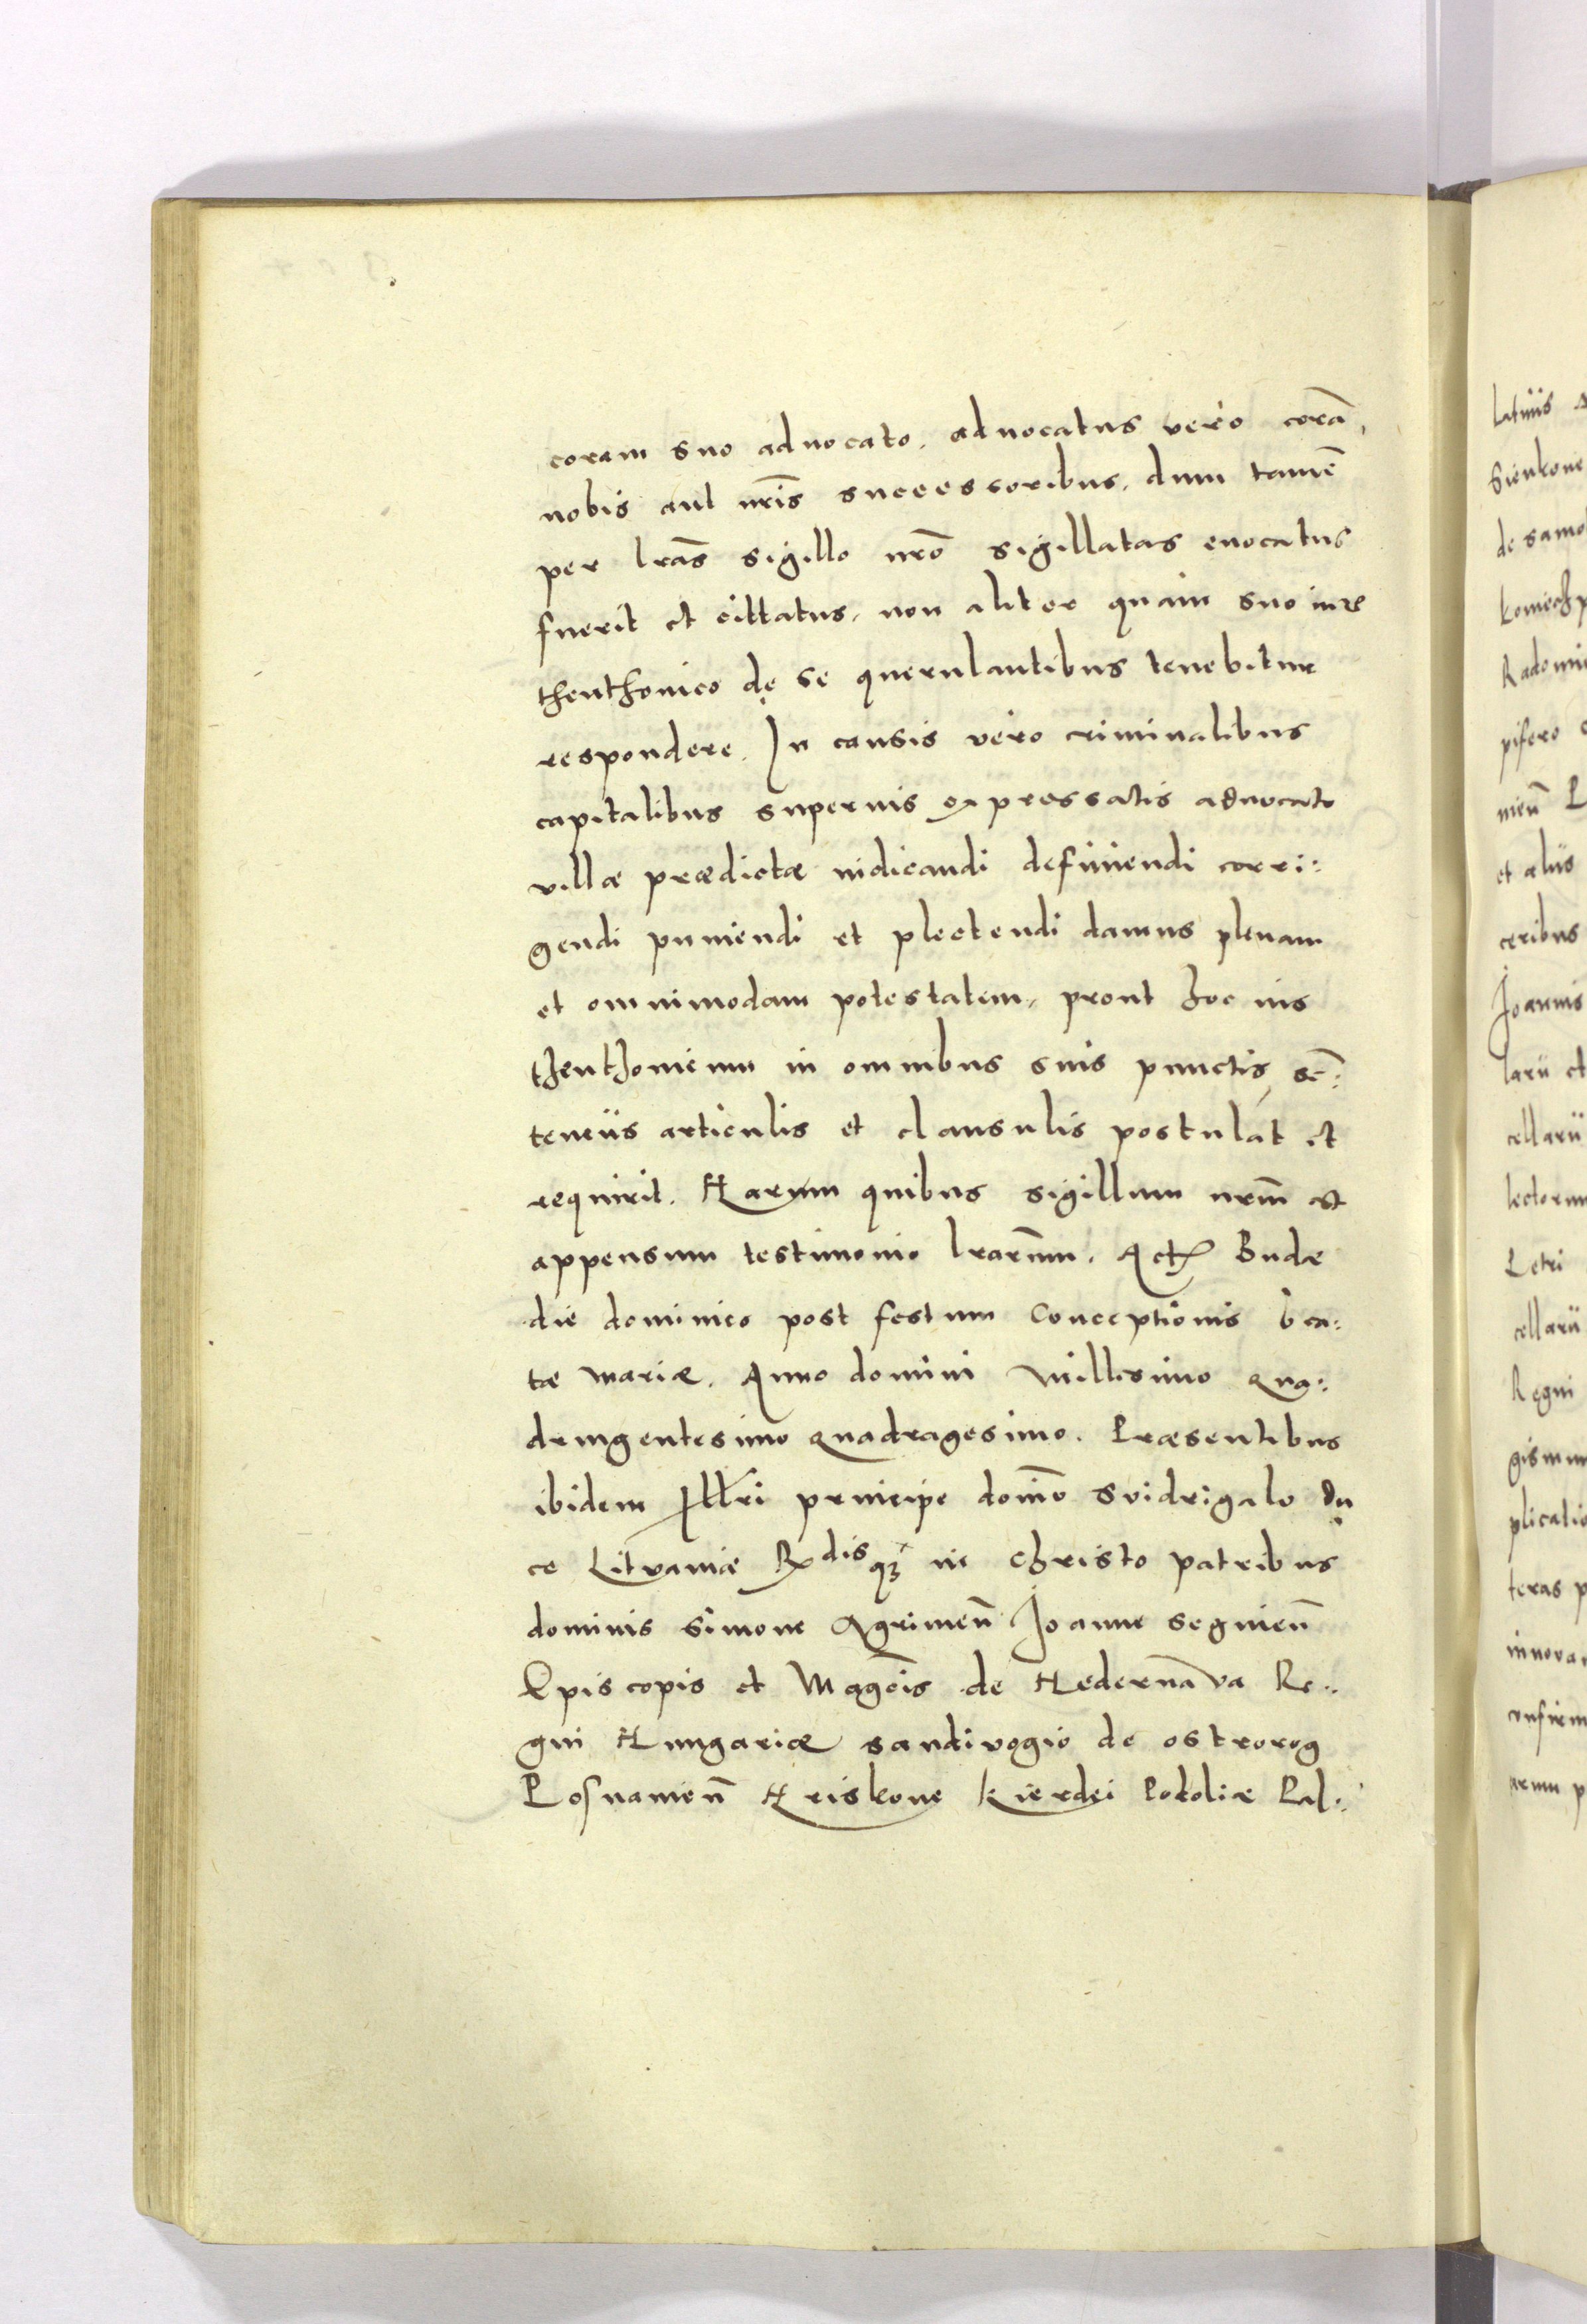 coram suo aduocato. aduocatus vero corā,
nobis aut nr̄is successoribus, dum tamē
per lrās sigillo nrō sigillatas euocatus
fuerit et cittatus, non aliter quam suo iure
theuthonico de se querulantibus tenebitur
respondere. In causis vero criminalibus
capitalibus superius expressatis aduocato
villæ prædictæ iudicandi definiendi corri:
gendi puniendi et plectendi damus plenam
et omnimodam potestatem, prout hoc ius
theuthonicum in omnibus suis punctis, sē:
tenciis articulis et clausulis postulat et
requirit. Harum quibus sigillum nrm̄ est
appensum testimonio lrarum̄. Act Budæ
die dominico post festum Conceptionis bea:
tæ Mariæ. Anno domini Millesimo qua:
dringentesimo quadragesimo. Præsentibus
ibidem Illri principe domīo Svidrigalo du
ce Litvaniæ Rdisq3 in Christo patribus
dominis Simone Agrimen̄ Joanne Segnien̄
Episcopis et Magcis de Hedernāva Re:
gni Hungariæ Sandivogio de Ostrorog
Posnanien̄ Hriskone Kierdei Podoliæ Pal:
latinis
Sienkone
de samo
koniech
Radomi
pifero
nien̄ P
et aliis
ceribus
Joannis
larii et
cellarii
lectorum
Petri
cellarii
Regni
gismun
plicatio
teras p
innovar
confirm
arum p